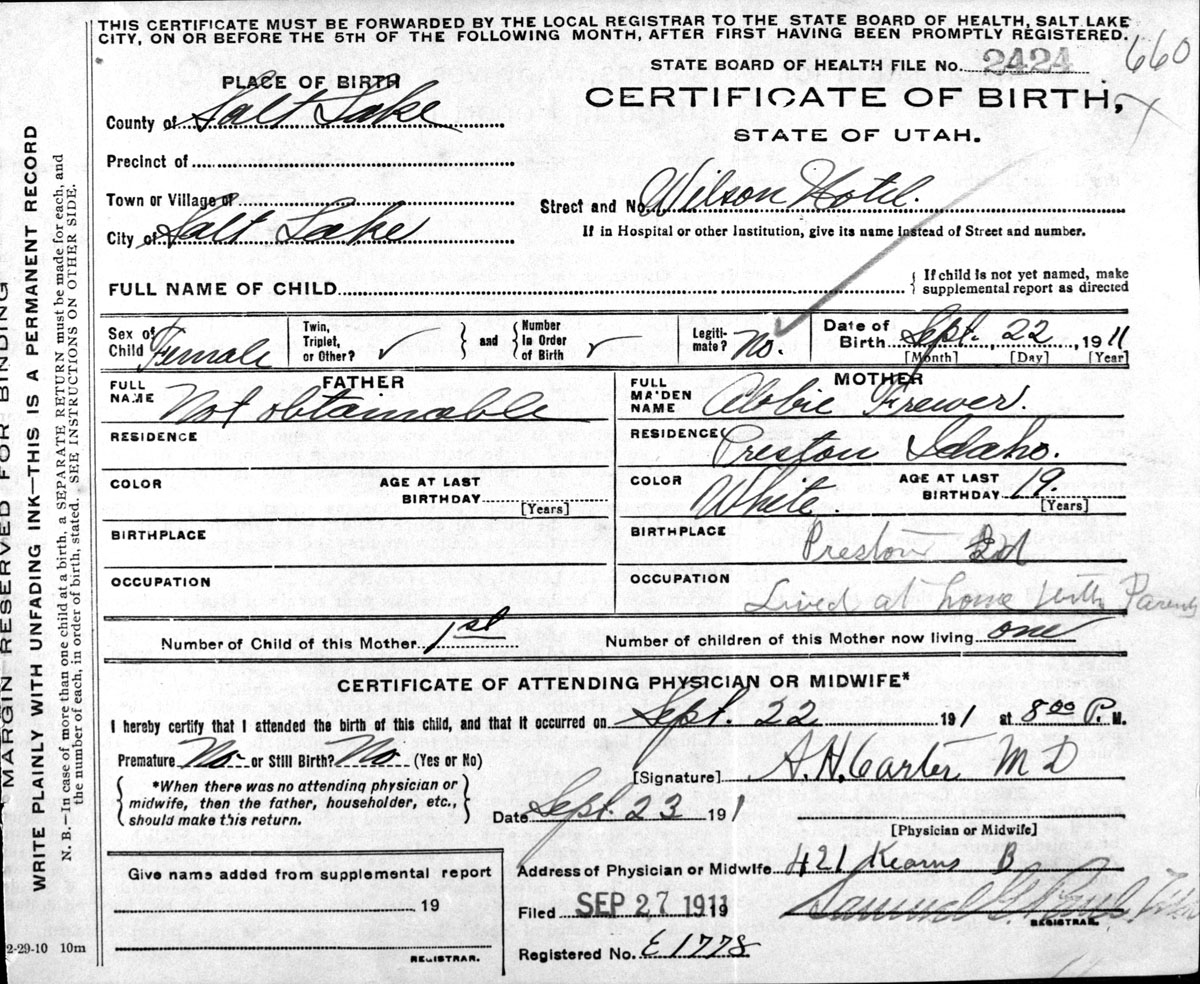 THIS CERTIFICATE MUST BE FORWARDED BY THE LOCAL REGISTRAR TO THE STATE BOARD OF HEALTH, SALT LAKE
CITY, ON OR BEFORE THE 5TH OF THE FOLLOWING MONTH, AFTER FIRST HAVING BEEN PROMPTLY REGISTERED.
660
STATE BOARD OF HEALTH FILE NO. 2424
PLACE OF BIRTH
CERTIFICATE OF BIRTH,
County of Salt Lake
STATE OF UTAH.
Precinct of
Town or Village of
Street and No. Wilson Hotel.
City of Salt Lake
If in Hospital or other Institution, give its name instead of Street and number.
FULL NAME OF CHILD
If child is not yet named, make
supplemental report as directed
Sex of
Child Female
Twin,
Triplet,
or Other? ✓
and
Number
in Order
of Birth ✓
Legiti-
mate? No.
Date of
Birth Sept. 22, 1911
[Month] [Day] [Year]
FATHER
FULL
NAME Not obtainable
RESIDENCE
COLOR
AGE AT LAST
BIRTHDAY
[Years]
BIRTHPLACE
OCCUPATION
MOTHER
FULL
MAIDEN
NAME Abbie Frewer.
RESIDENCE Preston Idaho.
COLOR White.
AGE AT LAST
BIRTHDAY 19.
[Years]
BIRTHPLACE Preston Id
OCCUPATION
Lived at home with Parents
Number of Child of this Mother 1st
Number of children of this Mother now living one
CERTIFICATE OF ATTENDING PHYSICIAN OR MIDWIFE*
I hereby certify that I attended the birth of this child, and that it occurred on Sept. 22 191 at 8 00 P. M.
Premature No. or Still Birth? No. (Yes or No)
[Signature] A. H. Carter M D
*When there was no attending physician or
midwife, then the father, householder, etc.,
should make this return.
Date Sept. 23 191
[Physician or Midwife]
Give name added from supplemental report
19
REGISTRAR.
Address of Physician or Midwife 421 Kearns B
Filed SEP 27 1911 19
Samuel G. Paul
REGISTRAR.
Registered No. E 1778
2-29-10 10m
MARGIN RESERVED FOR BINDING
WRITE PLAINLY WITH UNFADING INK—THIS IS A PERMANENT RECORD
N. B.—In case of more than one child at a birth, a SEPARATE RETURN must be made for each, and
the number of each, in order of birth, stated. SEE INSTRUCTIONS ON OTHER SIDE.